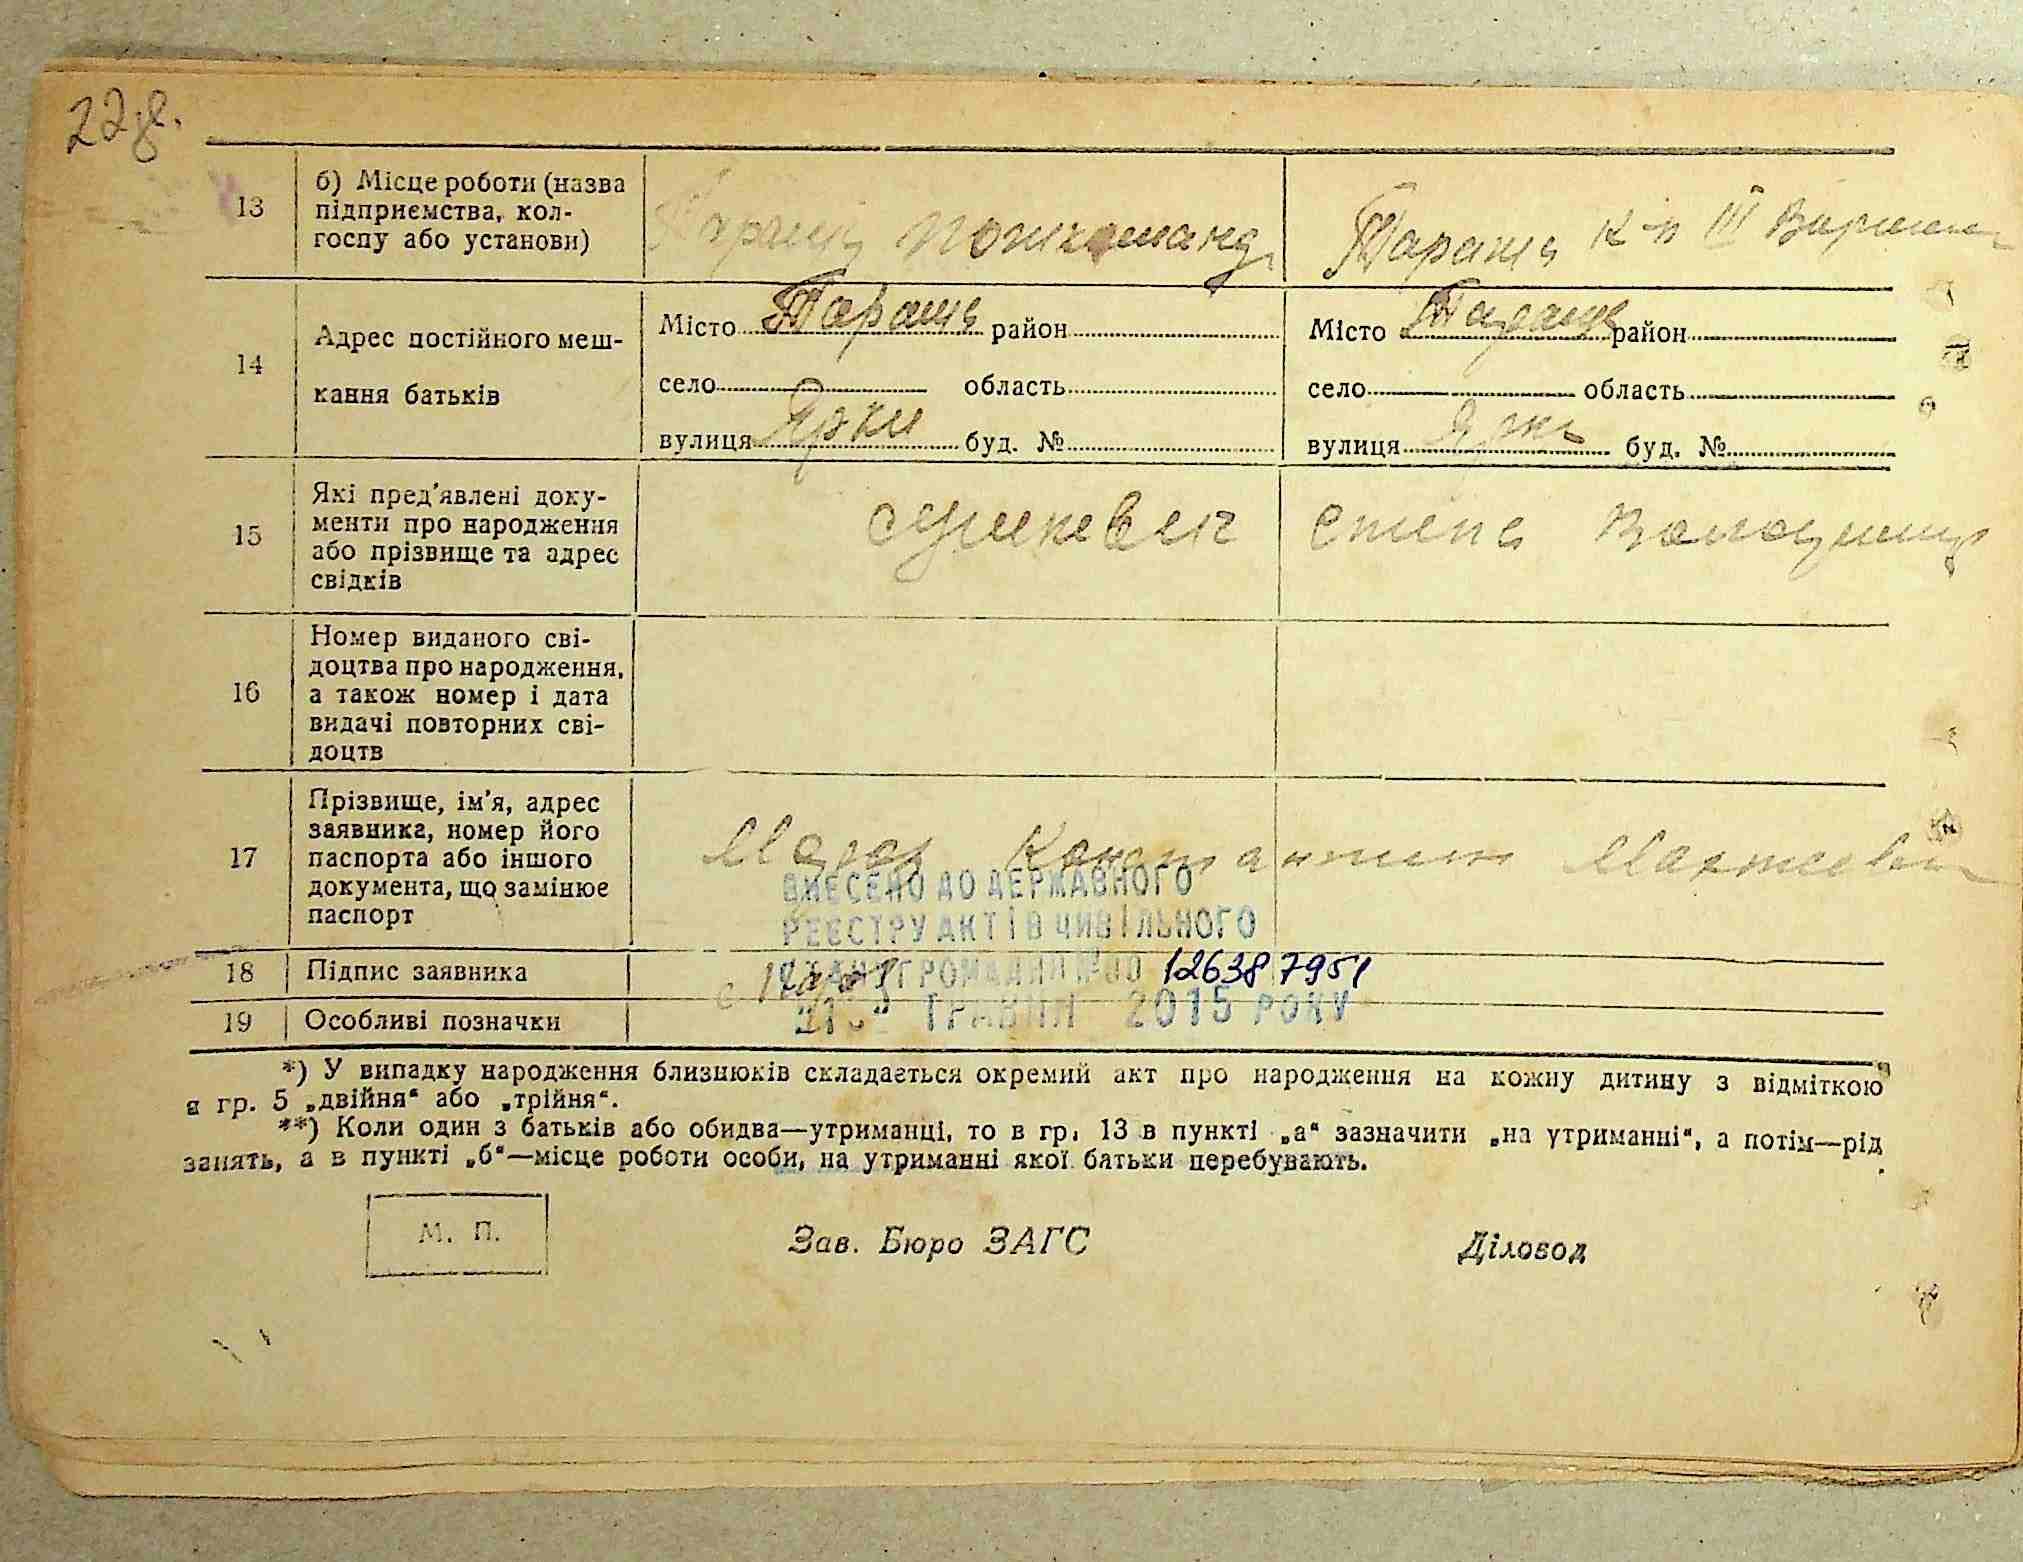 22
13
б) Місце роботи (назва
підприємства, кол-
госпу або установи)
пожкоманд
Тараща к-п ІІІ Вирішал
14
Адрес постійного меш-
кання батьків
Місто Тараща район
село область
вулиця Ярки буд. №
Місто Тараща район
село область
вулиця Ярки буд. №
15
Які пред'явлені доку-
менти про народження
або прізвище та адрес
свідків
16
Номер виданого сві-
доцтва про народження,
а також номер і дата
видачі повторних сві-
доцтв
17
Прізвище, ім'я, адрес
заявника, номер його
паспорта або іншого
документа, що замінює
паспорт
Константин
ВНЕСЕНО ДО ДЕРЖАВНОГО
РЕЄСТРУ АКТІВ ЦИВІЛЬНОГО
СТАНУ ГРОМАДЯН №00 126387951
ТРАВНЯ 2015 РОКУ
18 Підпис заявника
19 Особливі позначки
*) У випадку народження близнюків складається окремий акт про народження на кожну дитину з відміткою
в гр. 5 „двійня“ або „трійня“.
**) Коли один з батьків або обидва—утриманці, то в гр. 13 в пункті „а“ зазначити „на утриманні“, а потім—рід
занять, а в пункті „б“—місце роботи особи, на утриманні якої батьки перебувають.
М. П.
Зав. Бюро ЗАГС
Діловод